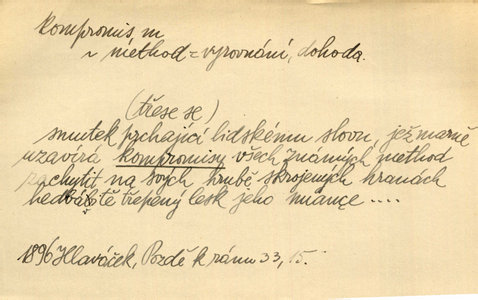 kompromis, m
~ method = vyrovnání, dohoda.
(třese se)
smutek prchající lidskému slovu, jež marně
uzavírá kompromisy všech známých method
zachytit na svých hrubě skrojených hranách
hedbáště třepený lesk jeho nuance ....
1896 Hlaváček, Pozdě k ránu 33, 15.